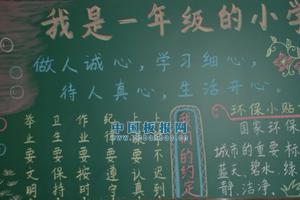 我是一年级的小学
做人诚心，学习细心，
待人真心，生活开心。
我们的约定
上课不迟到
上
纪律要遵守
作业要按时
卫生要保持
举止要文明
环保小贴
国家环保
城市的重要标
蓝天、碧水、绿
静、洁净、
中国板报网